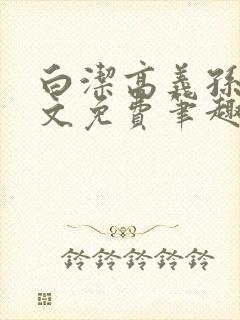 白潔高義孫
文免費筆趣
鈴鈴鈴鈴鈴